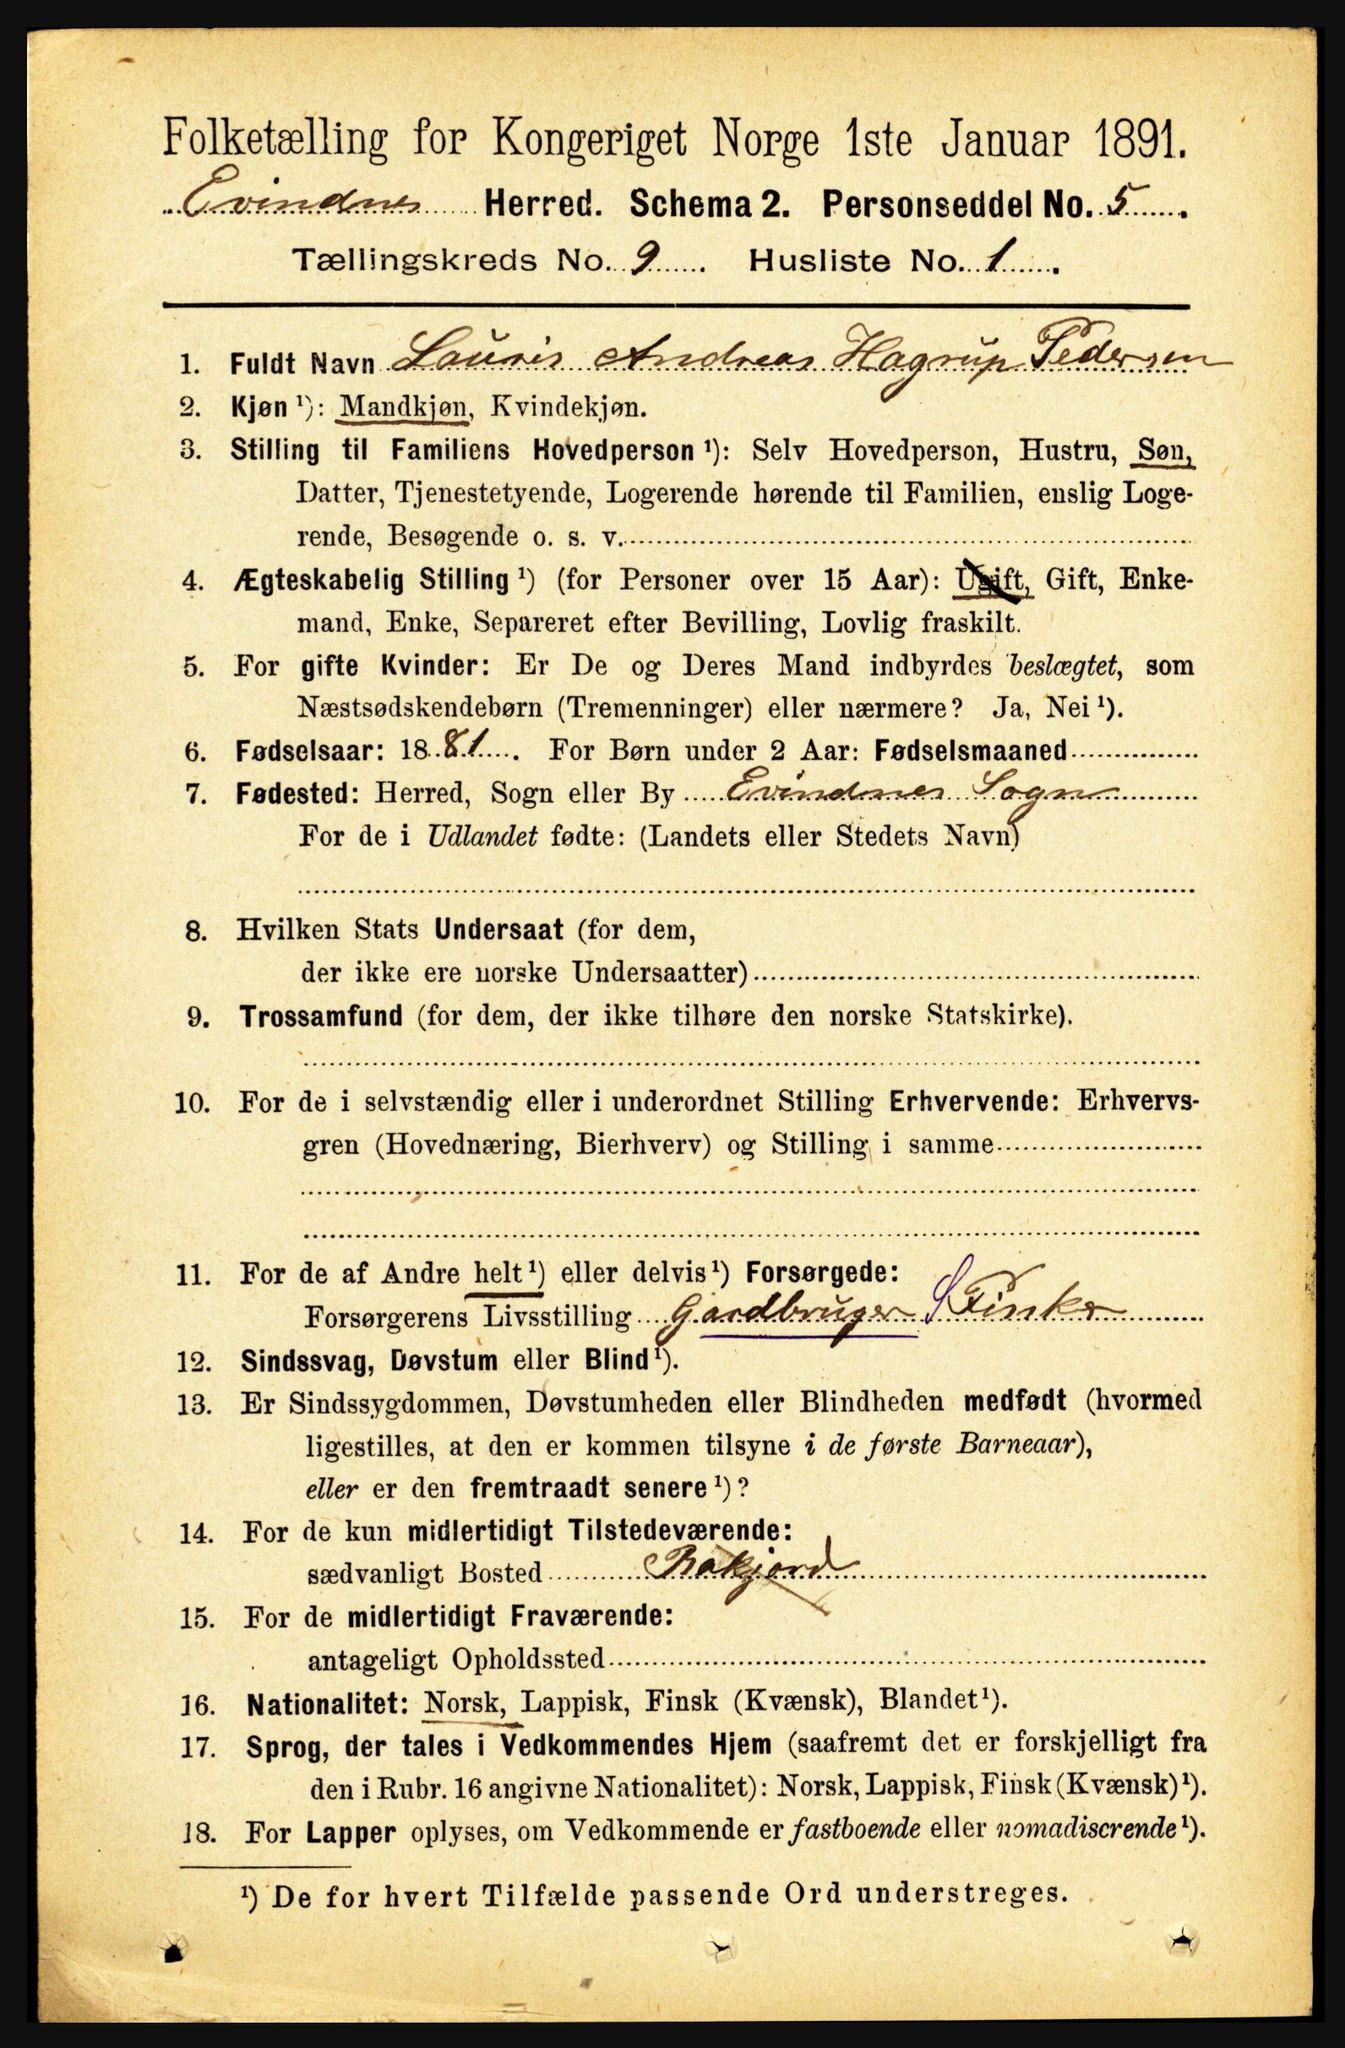 Folketælling for Kongeriget Norge 1ste Januar 1891.
Evindnes Herred. Schema 2. Personseddel No. 5.
Tællingskreds No. 9. Husliste No. 1.
1. Fuldt Navn Lauris Andreas Hagrup Pedersen
2. Kjøn ¹): Mandkjøn, Kvindekjøn.
3. Stilling til Familiens Hovedperson ¹): Selv Hovedperson, Hustru, Søn,
Datter, Tjenestetyende, Logerende hørende til Familien, enslig Loge-
rende, Besøgende o. s. v.
4. Ægteskabelig Stilling ¹) (for Personer over 15 Aar): Ugift, Gift, Enke-
mand, Enke, Separeret efter Bevilling, Lovlig fraskilt.
5. For gifte Kvinder: Er De og Deres Mand indbyrdes beslægtet, som
Næstsødskendebørn (Tremenninger) eller nærmere? Ja, Nei ¹).
6. Fødselsaar: 1881. For Børn under 2 Aar: Fødselsmaaned
7. Fødested: Herred, Sogn eller By Evindnes Sogn
For de i Udlandet fødte: (Landets eller Stedets Navn)
8. Hvilken Stats Undersaat (for dem,
der ikke ere norske Undersaatter)
9. Trossamfund (for dem, der ikke tilhøre den norske Statskirke).
10. For de i selvstændig eller i underordnet Stilling Erhvervende: Erhvervs-
gren (Hovednæring, Bierhverv) og Stilling i samme
11. For de af Andre helt ¹) eller delvis ¹) Forsørgede:
Forsørgerens Livsstilling Gaardbruger S Fisker
12. Sindssvag, Døvstum eller Blind ¹).
13. Er Sindssygdommen, Døvstumheden eller Blindheden medfødt (hvormed
ligestilles, at den er kommen tilsyne i de første Barneaar),
eller er den fremtraadt senere ¹)?
14. For de kun midlertidigt Tilstedeværende:
sædvanligt Bosted Bokjord
15. For de midlertidigt Fraværende:
antageligt Opholdssted
16. Nationalitet: Norsk, Lappisk, Finsk (Kvænsk), Blandet ¹).
17. Sprog, der tales i Vedkommendes Hjem (saafremt det er forskjelligt fra
den i Rubr. 16 angivne Nationalitet): Norsk, Lappisk, Finsk (Kvænsk) ¹).
18. For Lapper oplyses, om Vedkommende er fastboende eller nomadiserende ¹).
¹) De for hvert Tilfælde passende Ord understreges.